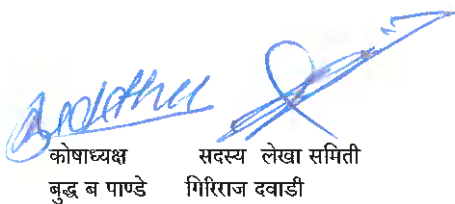 कोषाध्यक्ष सदस्य लेखा समिती
बुद्ध ब पाण्डे गिरिराज दवाडी